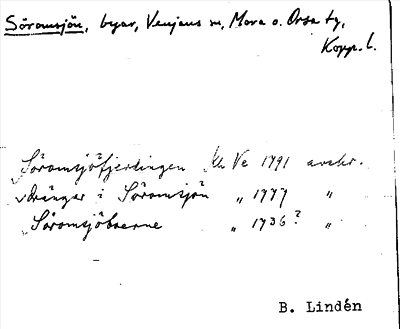 Söromsjön, byar, Venjans sn, Mora o. Orsa tg,
Kopp. l.
Söromsjöfjerdingen Kh Ve 1791 avskr.
Drängar i Söromsjön „ 1777 „
Söromsjöboerne „ 1736? „
B. Lindén